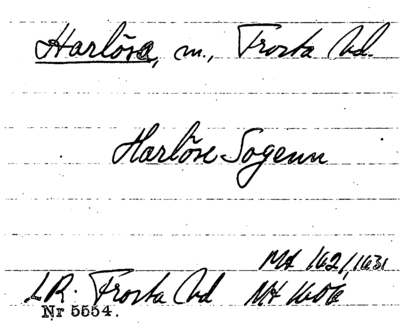 Harlösa, m., Frosta hd.
Harlöse Sogenn
Mt 162/1631
LR. Frosta hd Mt 1606
Nr 5554.